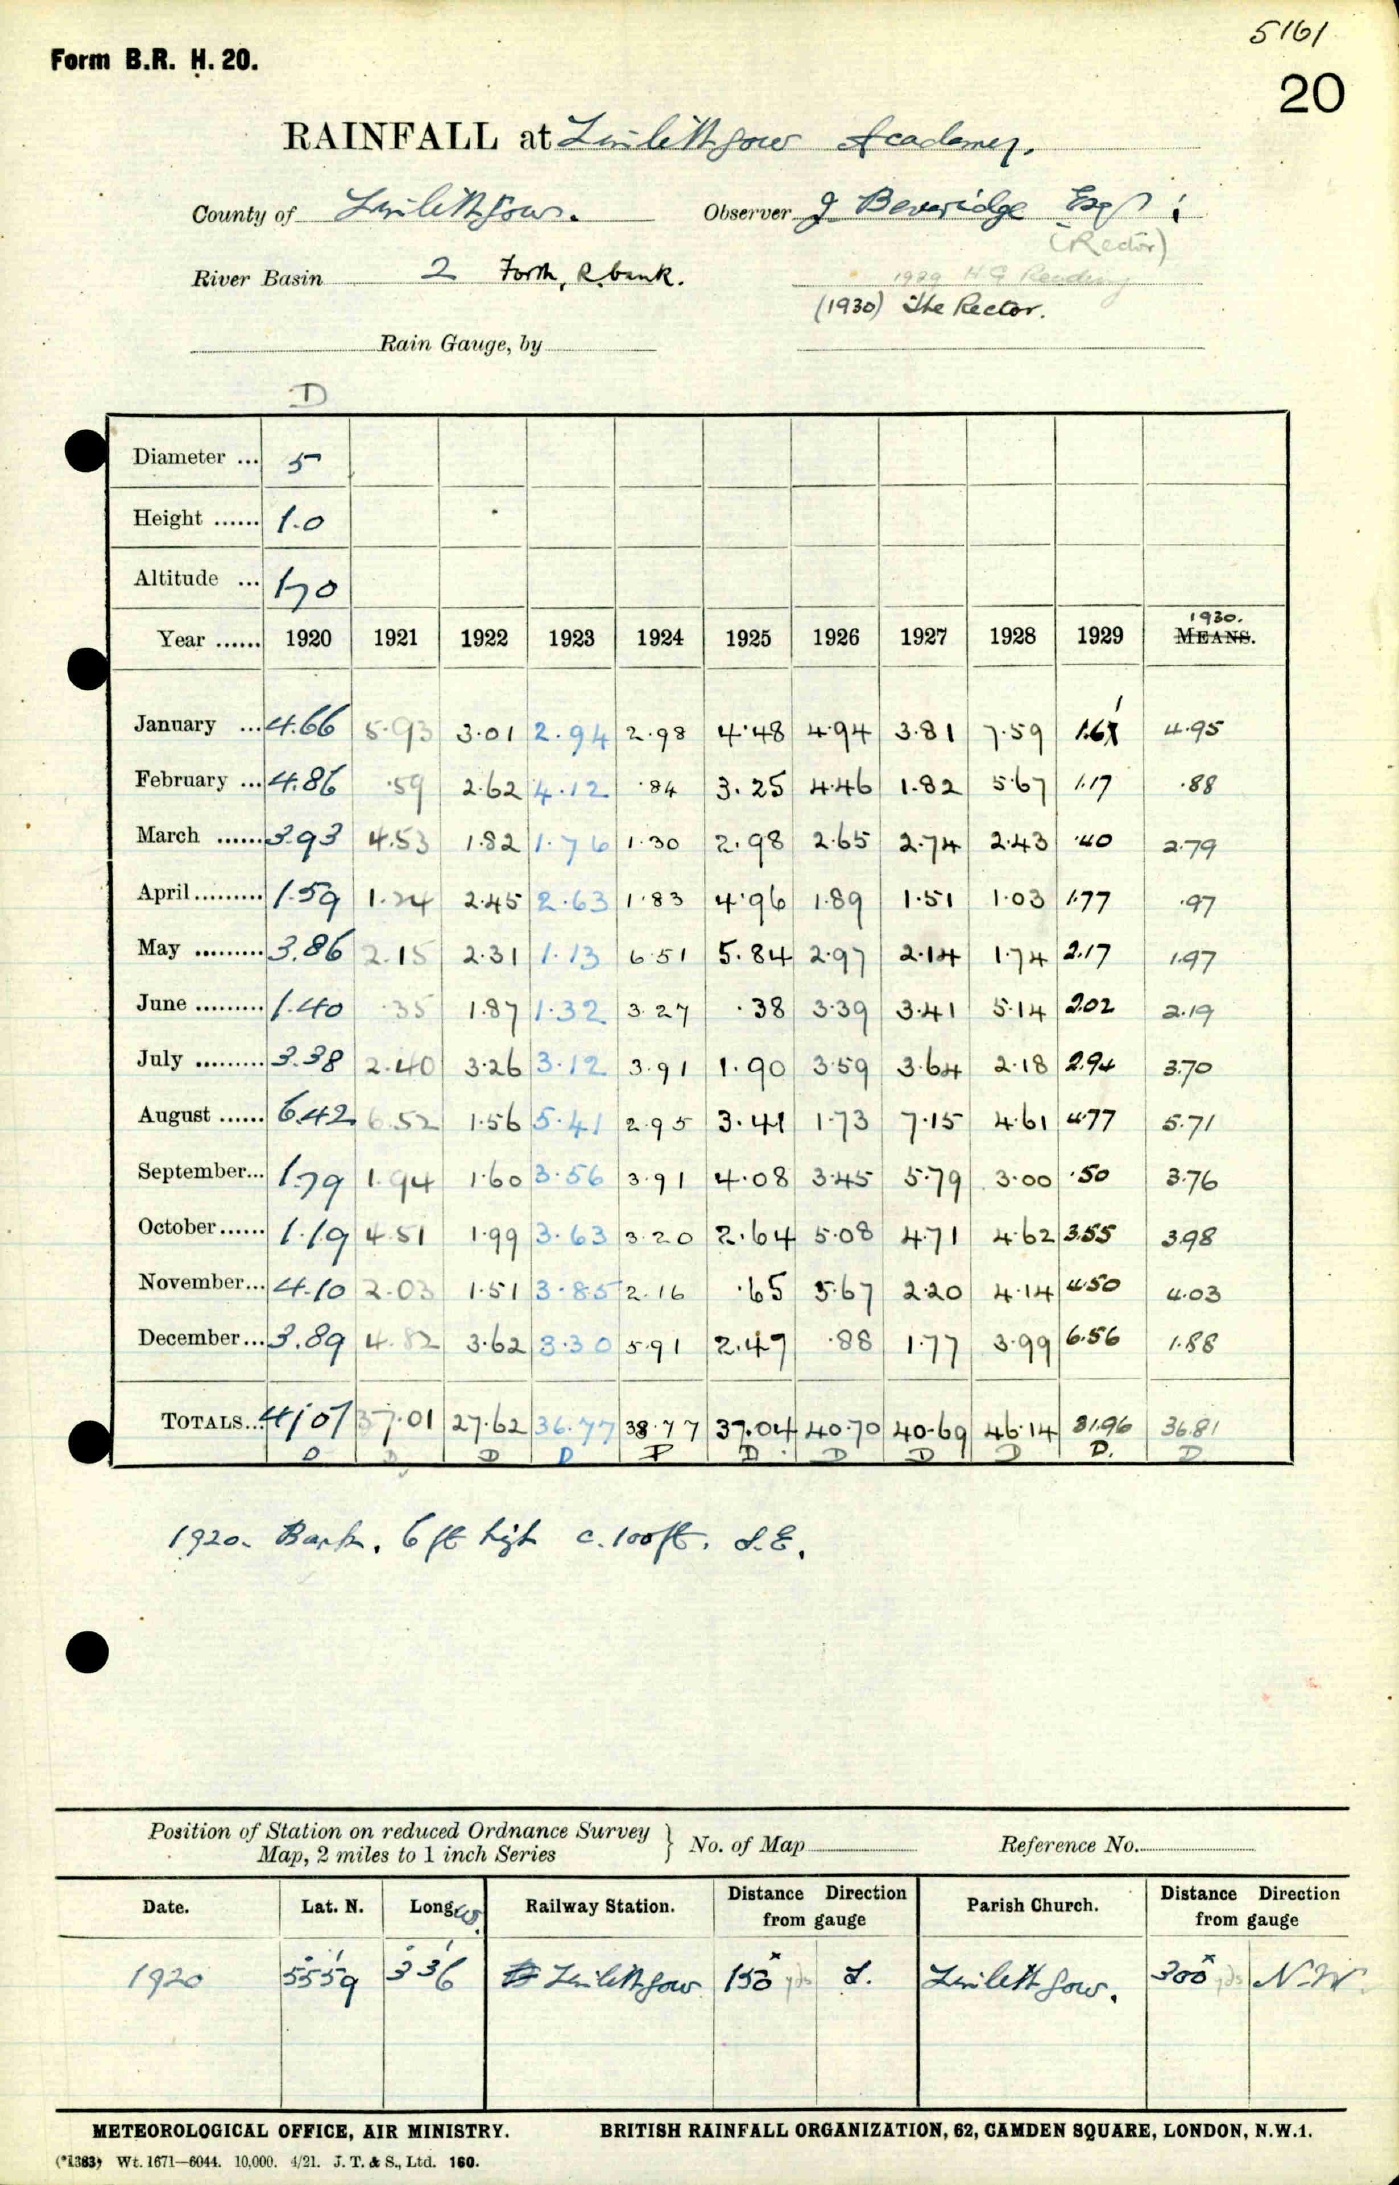 5161
Form B.R. H. 20.
20
RAINFALL at Linlithgow Academy.
County of Linlithgow. Observer J Beveridge Esq
(Rector)
River Basin 2 Forth, R. bank. 1929 H G Reading
(1930) The Rector.
Rain Gauge, by
D
Diameter ... 5
Height ...... 1.0
Altitude ... 170
1930.
Year ...... 1920 1921 1922 1923 1924 1925 1926 1927 1928 1929 MEANS.
January ... 4.66 5.93 3.01 2.94 2.98 4.48 4.94 3.81 7.59 1.61 4.95
February ... 4.86 .59 2.62 4.12 .84 3.25 4.46 1.82 5.67 1.17 .88
March ...... 3.93 4.53 1.82 1.76 1.30 2.98 2.65 2.74 2.43 .40 2.79
April ......... 1.59 1.24 2.45 2.63 1.83 4.96 1.89 1.51 1.03 1.77 .97
May ......... 3.86 2.15 2.31 1.13 6.51 5.84 2.97 2.14 1.74 2.17 1.97
June ......... 1.40 .35 1.87 1.32 3.27 .38 3.39 3.41 5.14 2.02 2.19
July ......... 3.38 2.40 3.26 3.12 3.91 1.90 3.59 3.64 2.18 2.94 3.70
August ...... 6.42 6.52 1.56 5.41 2.95 3.41 1.73 7.15 4.61 4.77 5.71
September... 1.79 1.94 1.60 3.56 3.91 4.08 3.45 5.79 3.00 .50 3.76
October ...... 1.19 4.51 1.99 3.63 3.20 2.64 5.08 4.71 4.62 3.55 3.98
November... 4.10 2.03 1.51 3.85 2.16 .65 5.67 2.20 4.14 4.50 4.03
December... 3.89 4.82 3.62 3.30 5.91 2.47 .88 1.77 3.99 6.56 1.88
TOTALS... 41.07 37.01 27.62 36.77 38.77 37.04 40.70 40.69 46.14 31.96 36.81
D D D D D D D D D D. D
1920. Bank, 6 ft high c. 100 ft. S.E.
Position of Station on reduced Ordnance Survey
Map, 2 miles to 1 inch Series } No. of Map Reference No.
Date. Lat. N. Long W. Railway Station. Distance Direction from gauge Parish Church. Distance Direction from gauge
1920 55° 59' 3° 36' Linlithgow 150 x yds S. Linlithgow. 300 x yds N.W.
METEOROLOGICAL OFFICE, AIR MINISTRY. BRITISH RAINFALL ORGANIZATION, 62, CAMDEN SQUARE, LONDON, N.W.1.
(*1383) Wt. 1671—6044. 10,000. 4/21. J. T. & S., Ltd. 160.